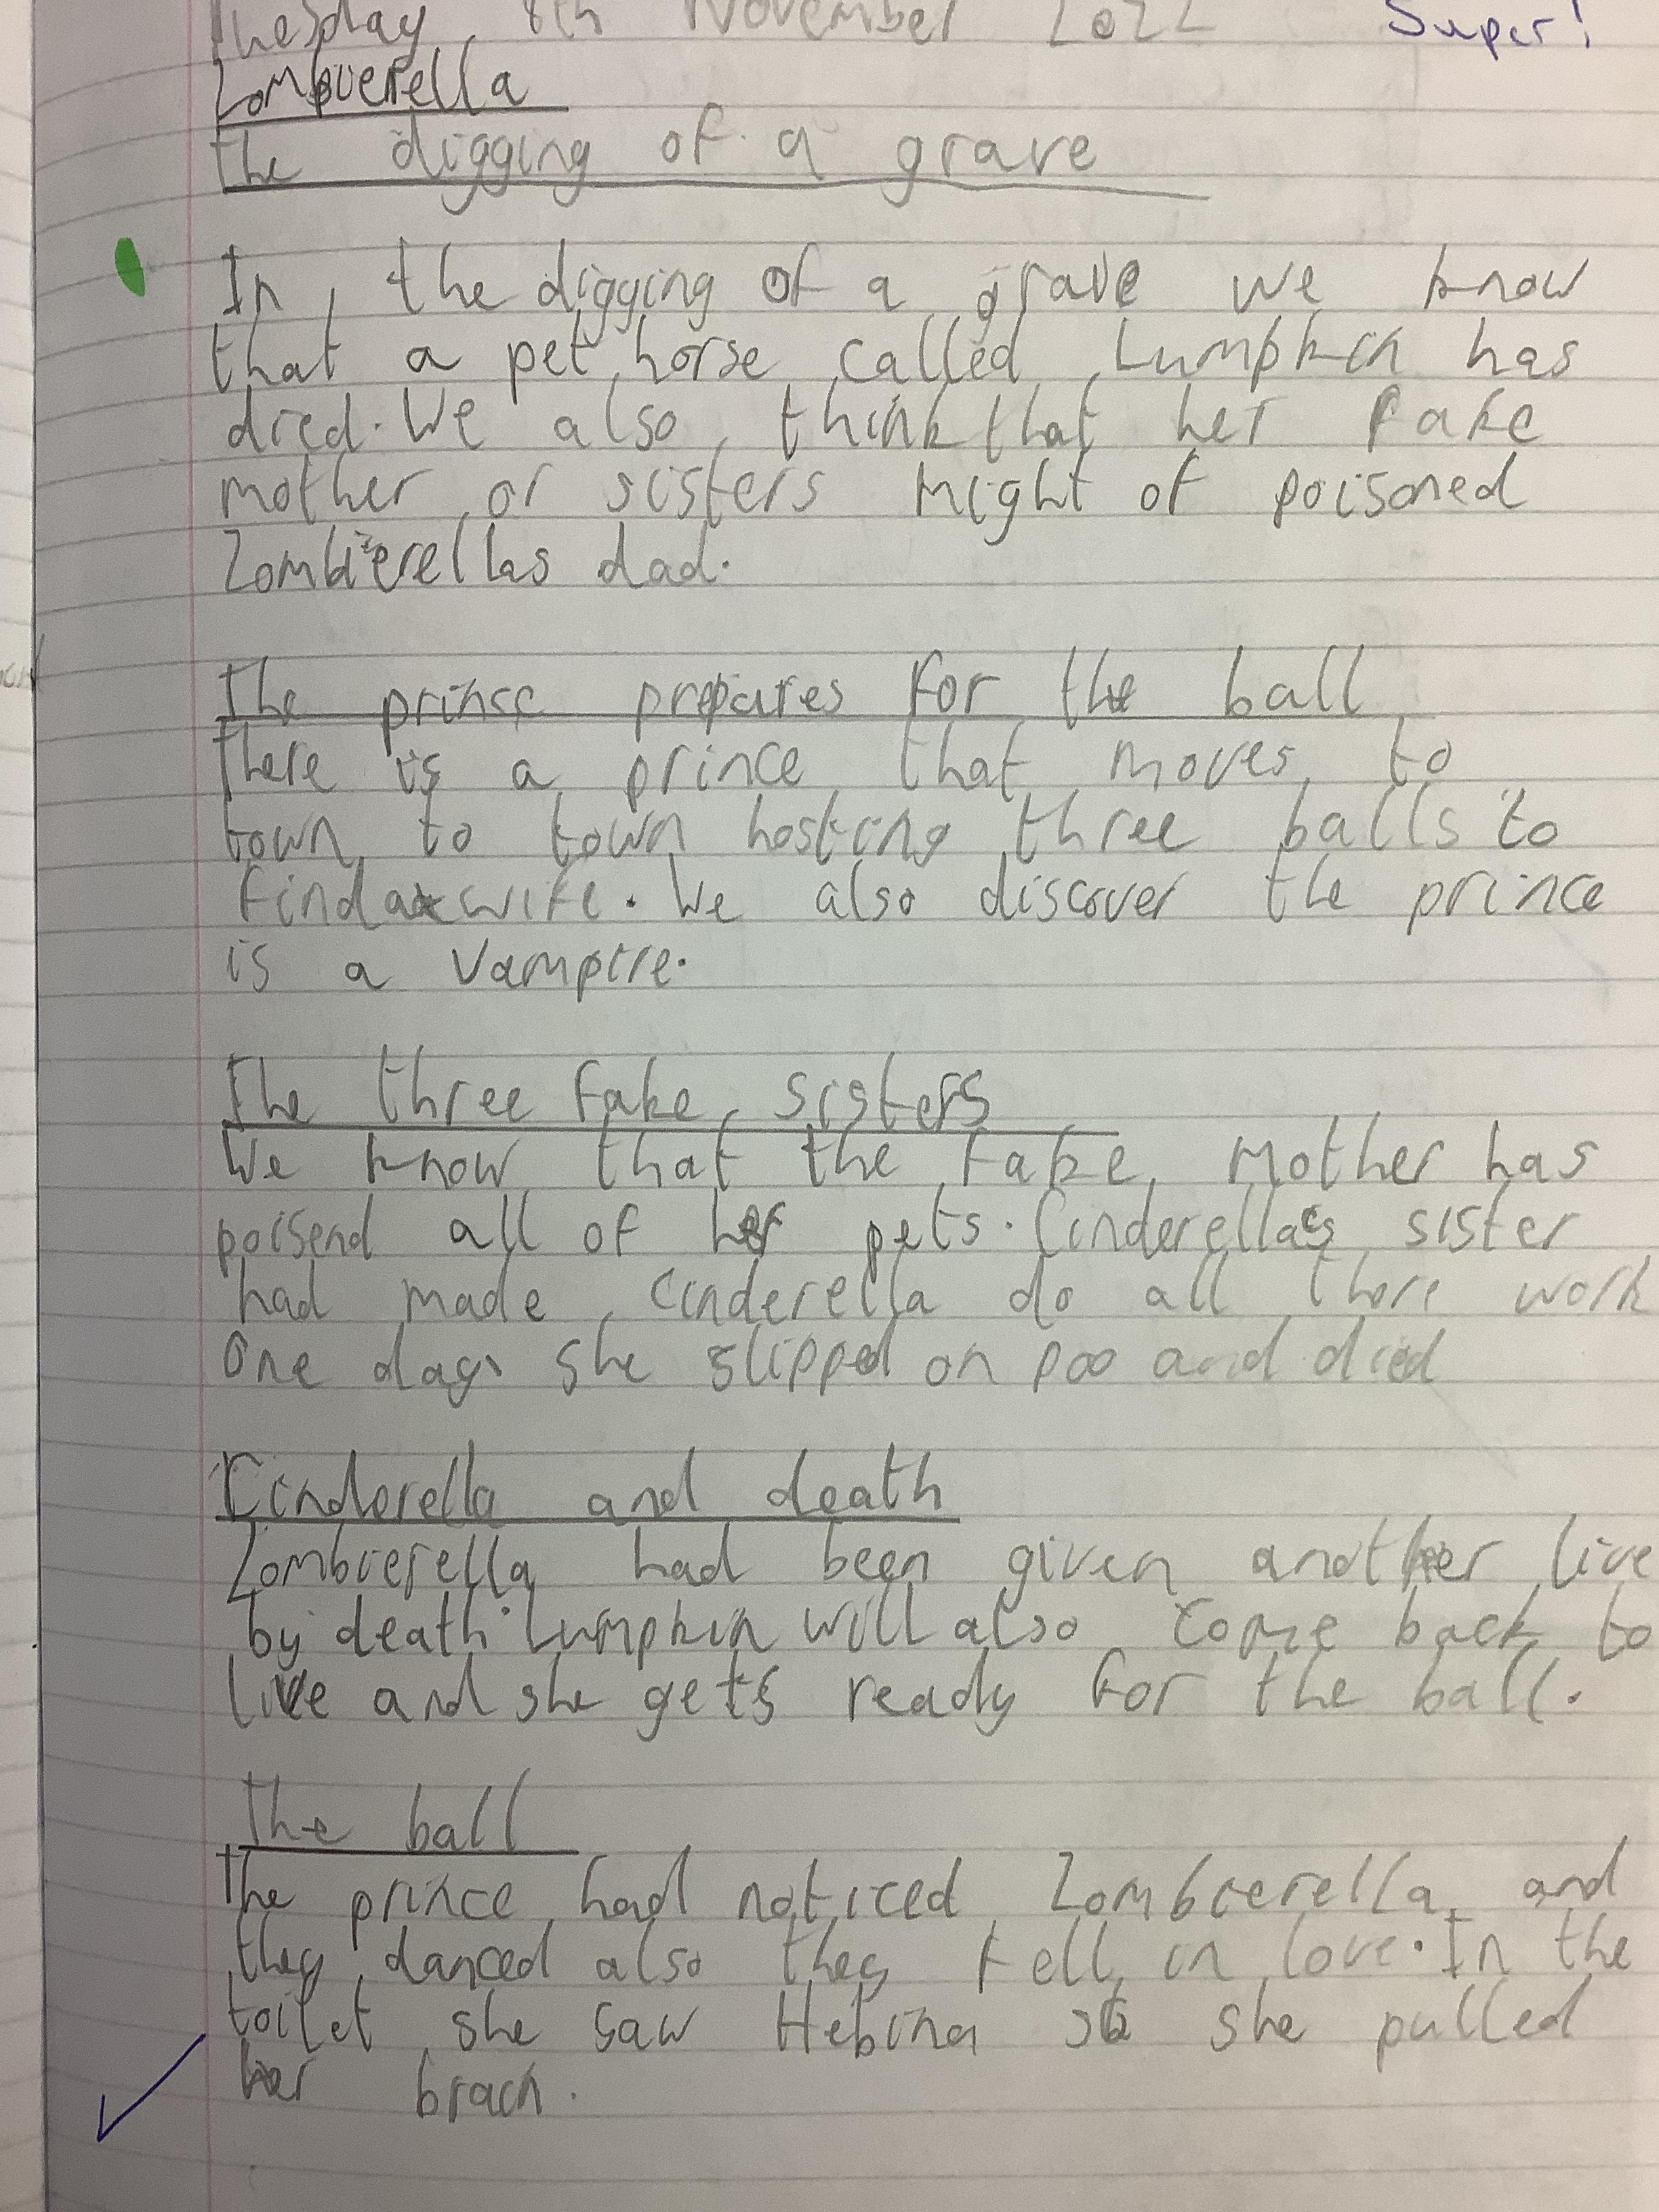 Tuesday 8th November 2022 Super!
Zombierella
the digging of a grave
In, the digging of a grave we know
that a pet horse called Lumpkin has
died. We also think that her fake
mother or sisters might of poisoned
Zombierellas dad.
The prince prepares for the ball
There is a prince that moves to
town to town hosting three balls to
find a wife. We also discover the prince
is a vampire.
The three fake sisters
We know that the fake mother has
poisend all of her pets. Cinderellas sister
had made Cinderella do all there work
One day she slipped on poo and died
Cinderella and death
Zombierella had been given another live
by death. Lumpkin will also come back to
live and she gets ready for the ball.
The ball
The prince had noticed Zombierella and
they danced also they fell in love. In the
toilet she saw Hebina so she pulled
her brain.